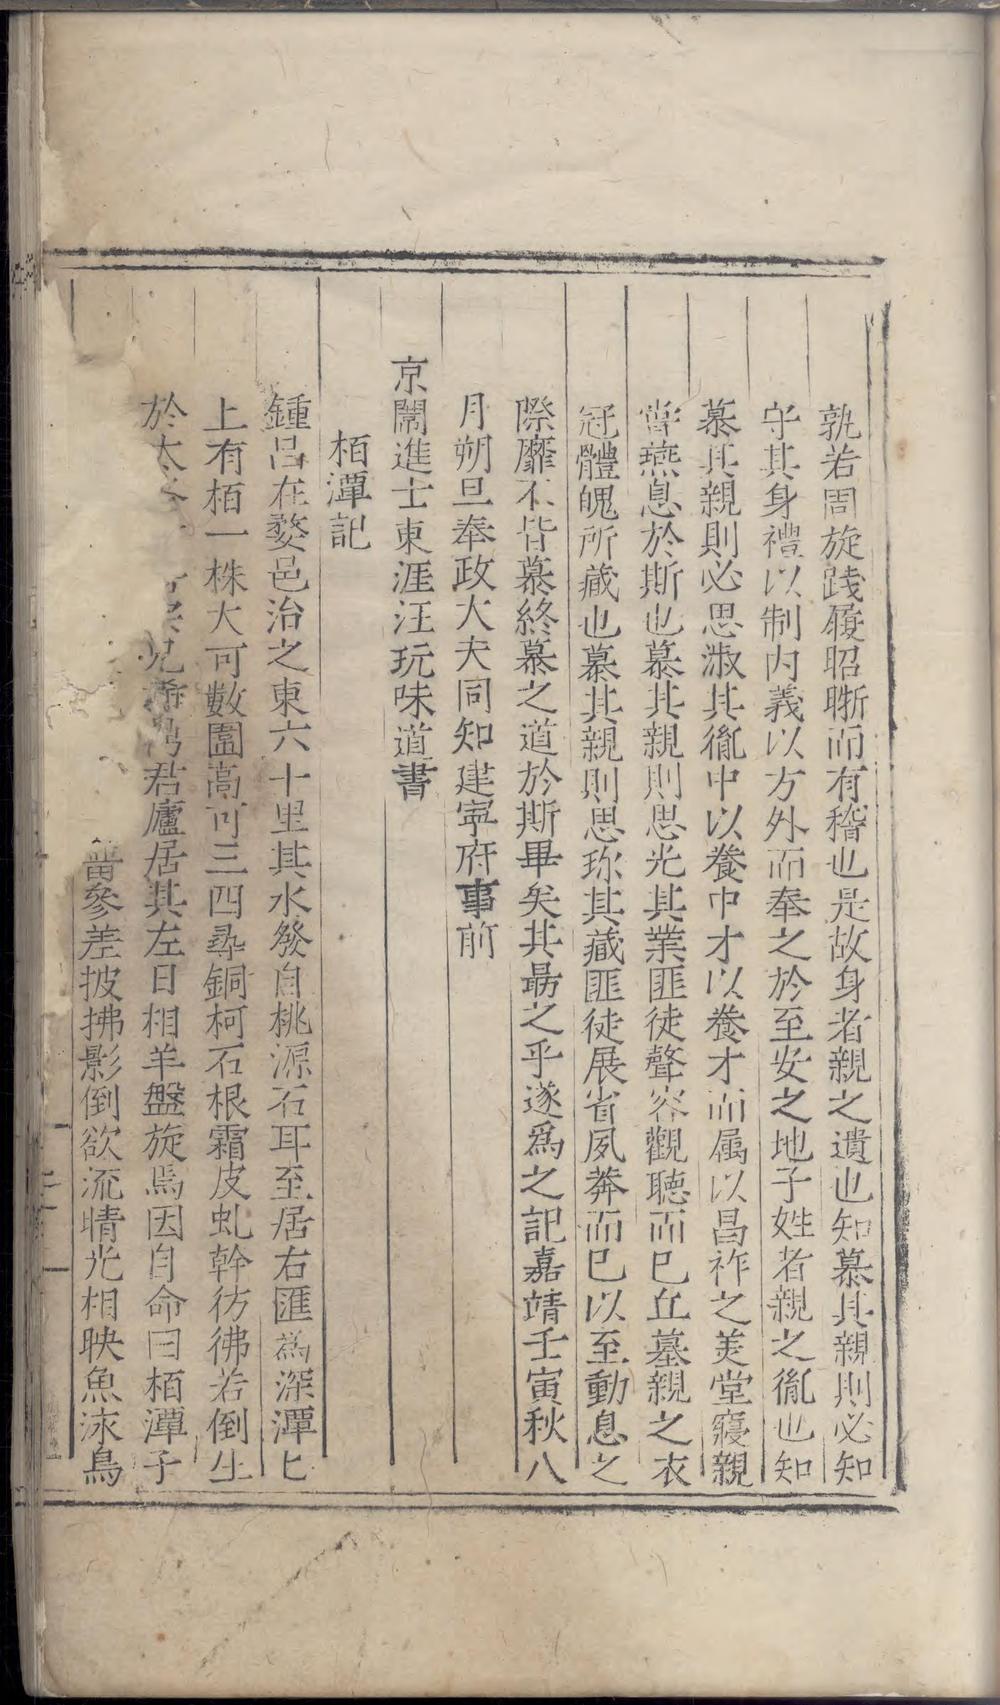 孰若周旋踐履昭晣而有稽也是故身者親之遺也知慕其親則必知
守其身禮以制内義以方外而奉之於至安之地子姓者親之胤也知
慕其親則必思淑其胤中以養中才以養才而属以昌祚之美堂寢親
嘗燕息於斯也慕其親則思光其業匪徒聲容觀聴而已丘墓親之衣
冠體魄所藏也慕其親則思珎其藏匪徒展省夙莾而已以至動息之
際靡不皆慕終慕之道於斯畢矣其朂之乎遂為之記嘉靖壬寅秋八
月朔旦奉政大夫同知建寧府事前
京闈進士東涯汪玩味道書
栢潭記
鍾呂在婺邑治之東六十里其水發自桃源石耳至居右匯為深潭匕
上有栢一株大可數圍高可三四尋銅柯石根霜皮虬幹彷彿若倒生
於太君廬居其左日相羊盤旋焉因自命曰栢潭子
參差披拂影倒欲流晴光相映魚泳鳥